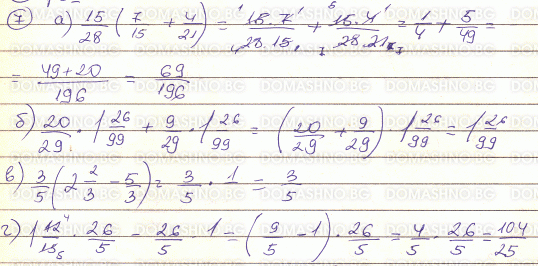 7 а) 15/28 (7/15 + 4/21) = 15.7/28.15 + 15.4/28.21 = 1/4 + 5/49 =
= 49+20/196 = 69/196
б) 20/29 . 1 26/99 + 9/29 . 1 26/99 = (20/29 + 9/29) . 1 26/99 = 1 26/99
в) 3/5 (2 2/3 - 5/3) = 3/5 . 1 = 3/5
г) 1 12/15 . 26/5 - 26/5 . 1 = (9/5 - 1) . 26/5 = 4/5 . 26/5 = 104/25